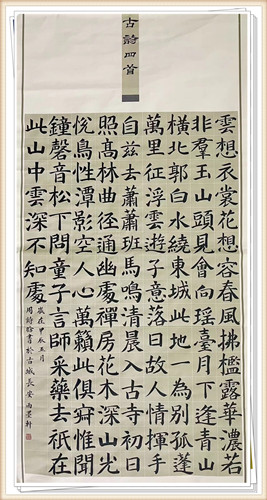 古詩四首
雲想衣裳花想容春風拂檻露華濃若
非羣玉山頭見會向瑤臺月下逢青山
橫北郭白水繞東城此地一為別孤蓬
萬里征浮雲遊子意落日故人情揮手
自兹去蕭蕭班馬鳴清晨入古寺初日
照髙林曲徑通幽處禪房花木深山光
悅鳥性潭影空人心萬籟此俱寂惟聞
鐘磬音松下問童子言師采藥去祇在
此山中雲深不知處
歲在甲辰五月
周詩書於古城長安雨墨軒